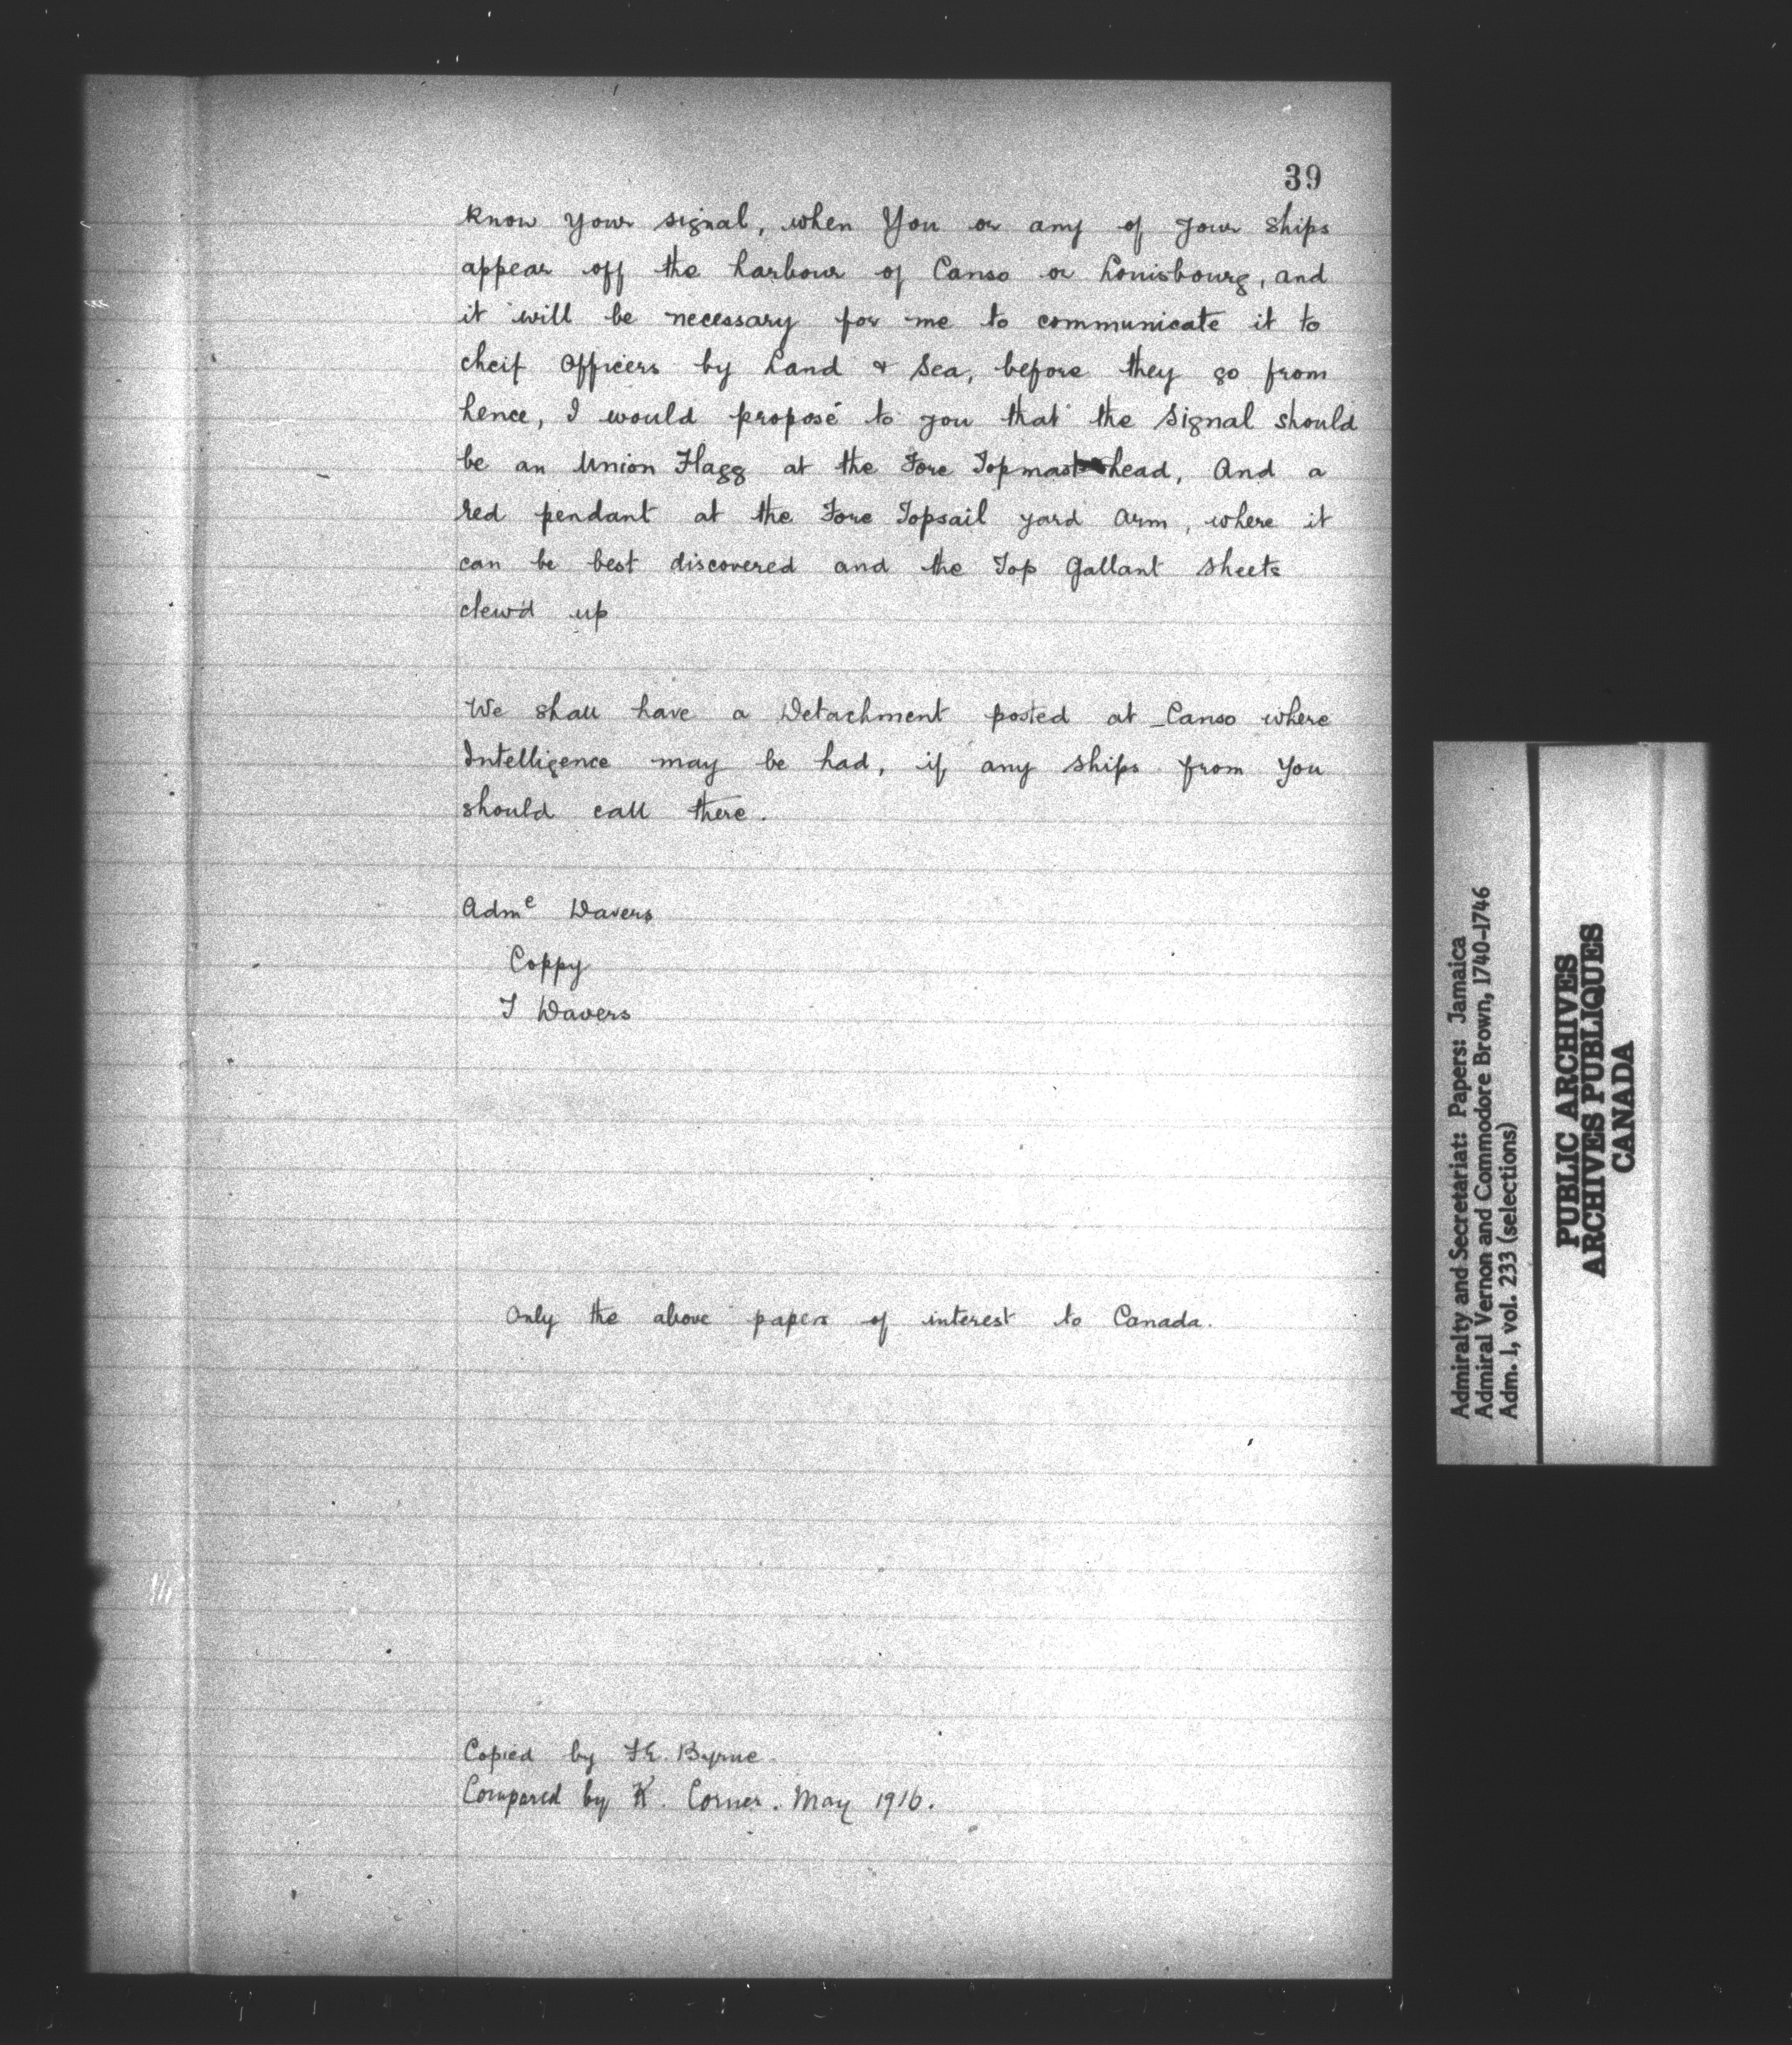 39
know your signal, when You or any of your ships
appear off the harbour of Canso or Louisbourg, and
it will be necessary for me to communicate it to
cheif Officers by Land & Sea, before they go from
hence, I would propose to you that the Signal should
be an Union Flagg at the Fore Topmast head, And a
red pendant at the Fore Topsail yard Arm, where it
can be best discovered and the Top Gallant Sheets
clew'd up
We shall have a Detachment posted at Canso where
Intelligence may be had, if any ships from You
should call there.
Adme Davers
Coppy
T Davers
Only the above papers of interest to Canada.
Copied by F.E. Byrne.
Compared by K. Corner. May 1916.
Admiralty and Secretariat: Papers: Jamaica
Admiral Vernon and Commodore Brown, 1740-1746
Adm. 1, vol. 233 (selections)
PUBLIC ARCHIVES
ARCHIVES PUBLIQUES
CANADA